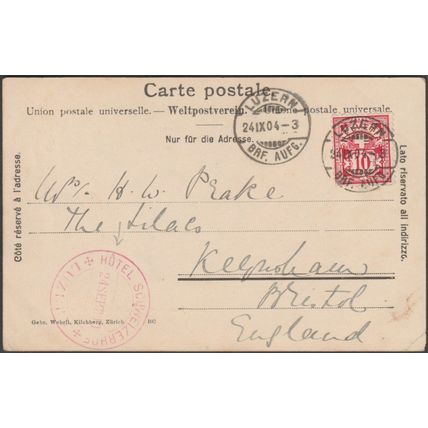 Carte postale.
Union postale universelle. — Weltpostverein. — Unione postale universale.
Nur für die Adresse.
Côté réservé à l'adresse.
Lato riservato all indirizzo.
LUZERN
24.IX.04-3
BRF. AUFG.
LUZERN
24.IX.04
BRF. AUFG.
10
H. W. Peake
The Lilacs
Keynsham
Bristol
England
HÔTEL SCHWEIZERHOF
LUZERN
24 SEP
Gebr. Wehrli, Kilchberg, Zürich